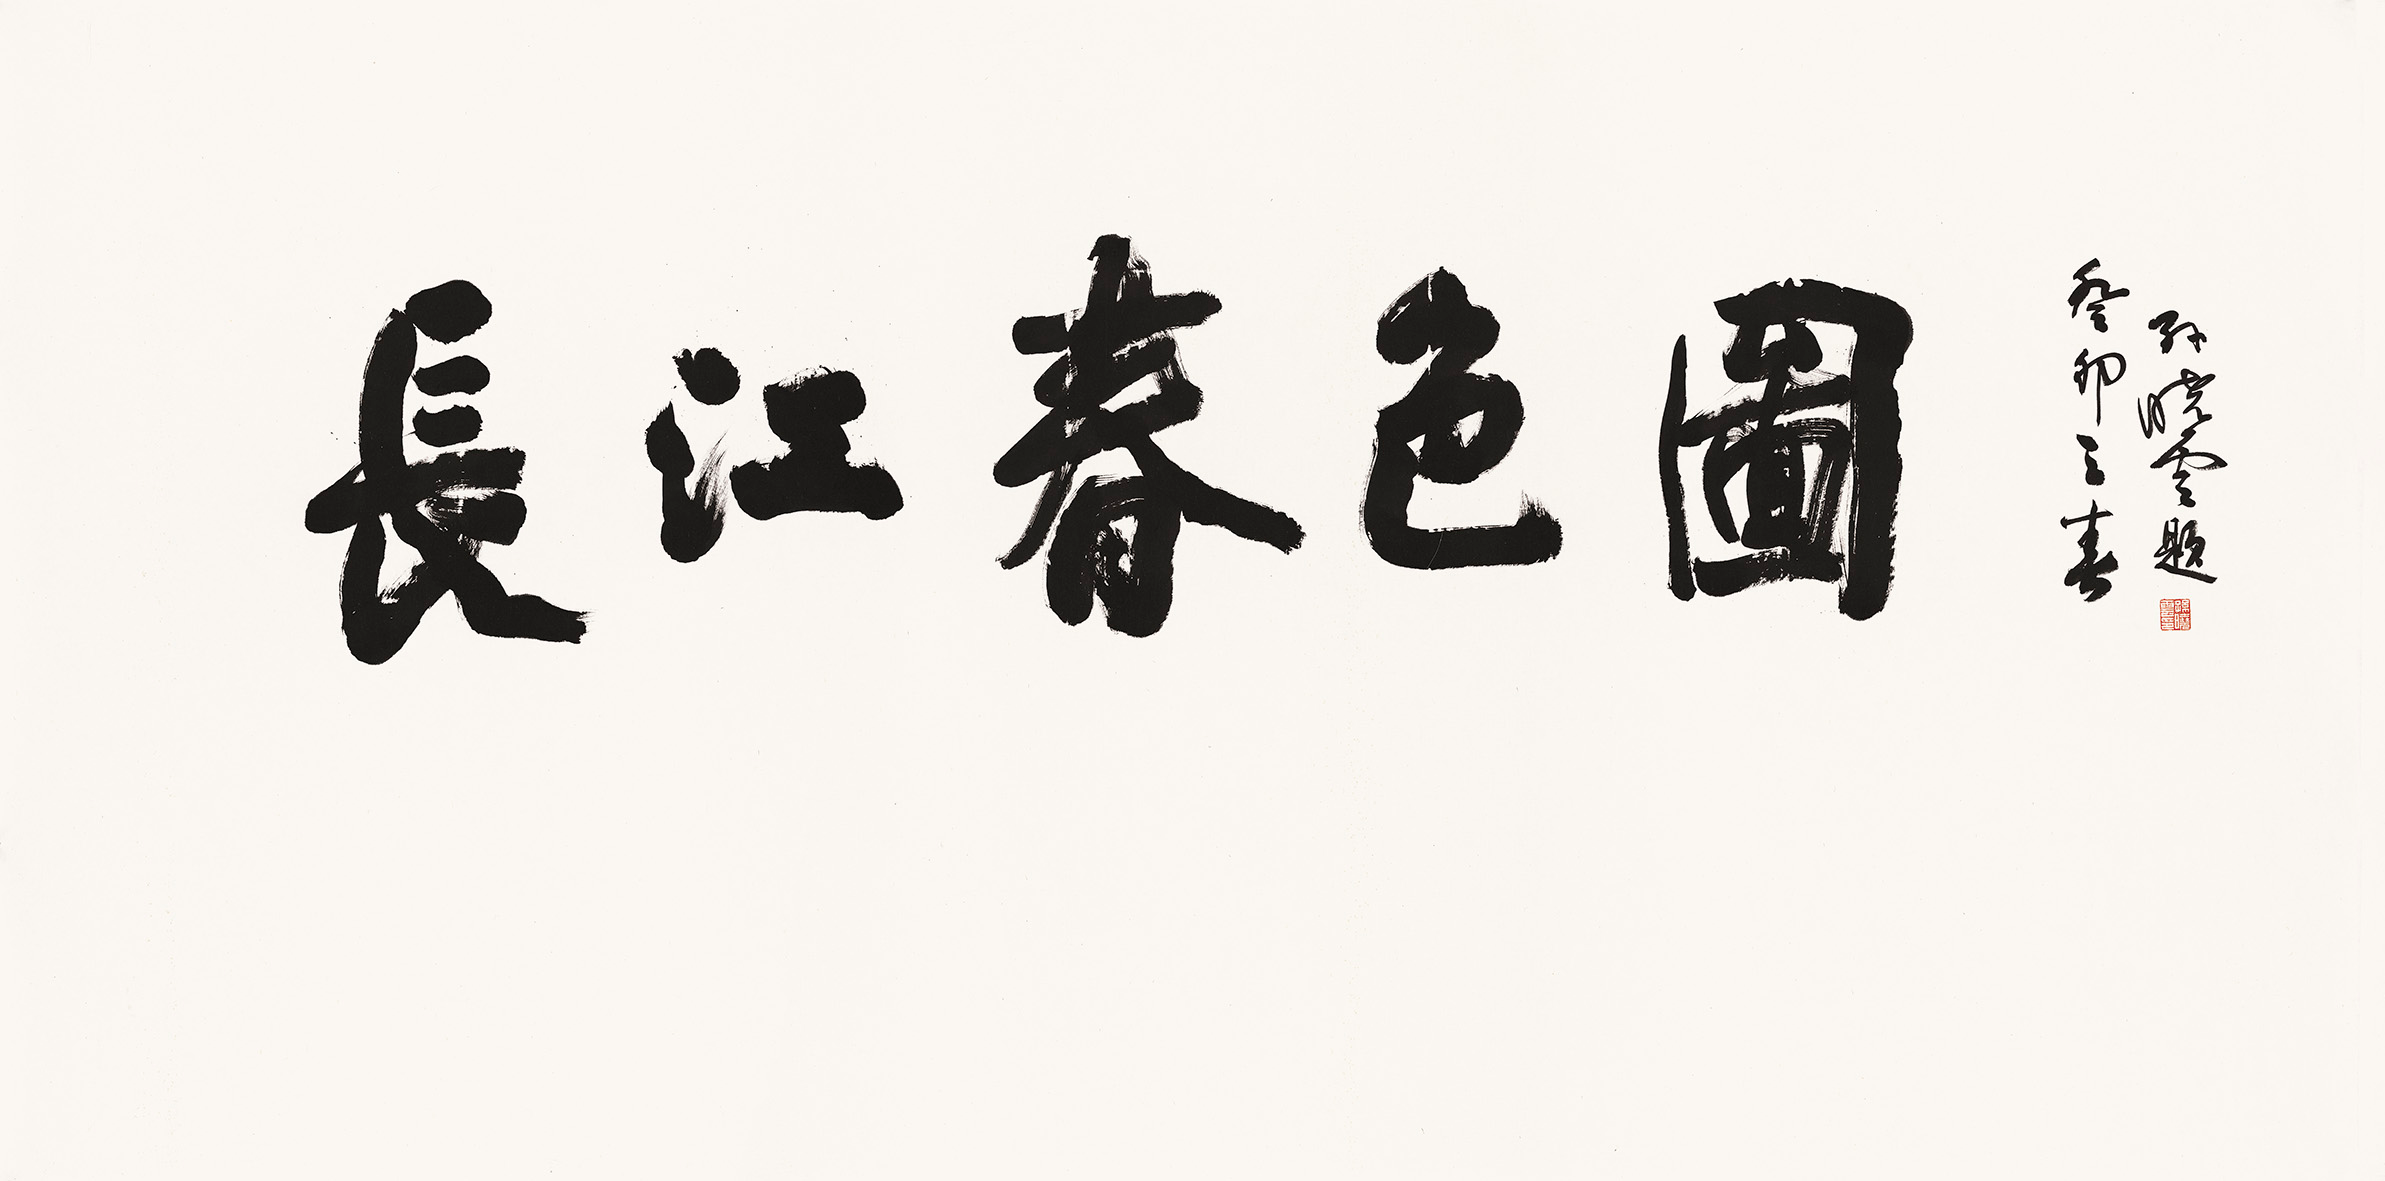 長江春色圖
癸卯之春
孫曉雲題